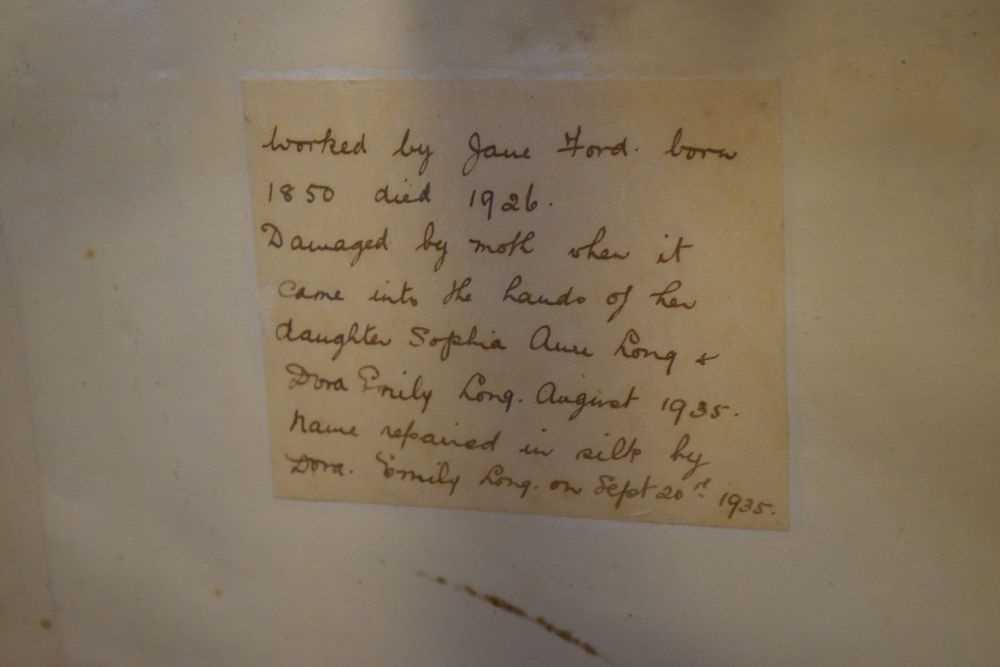 Worked by Jane Ford. born
1850 died 1926.
Damaged by moth when it
came into the hands of her
daughter Sophia Anne Long &
Dora Emily Long. August 1935.
Name repaired in silk by
Dora. Emily Long. on Sept 20th 1935.